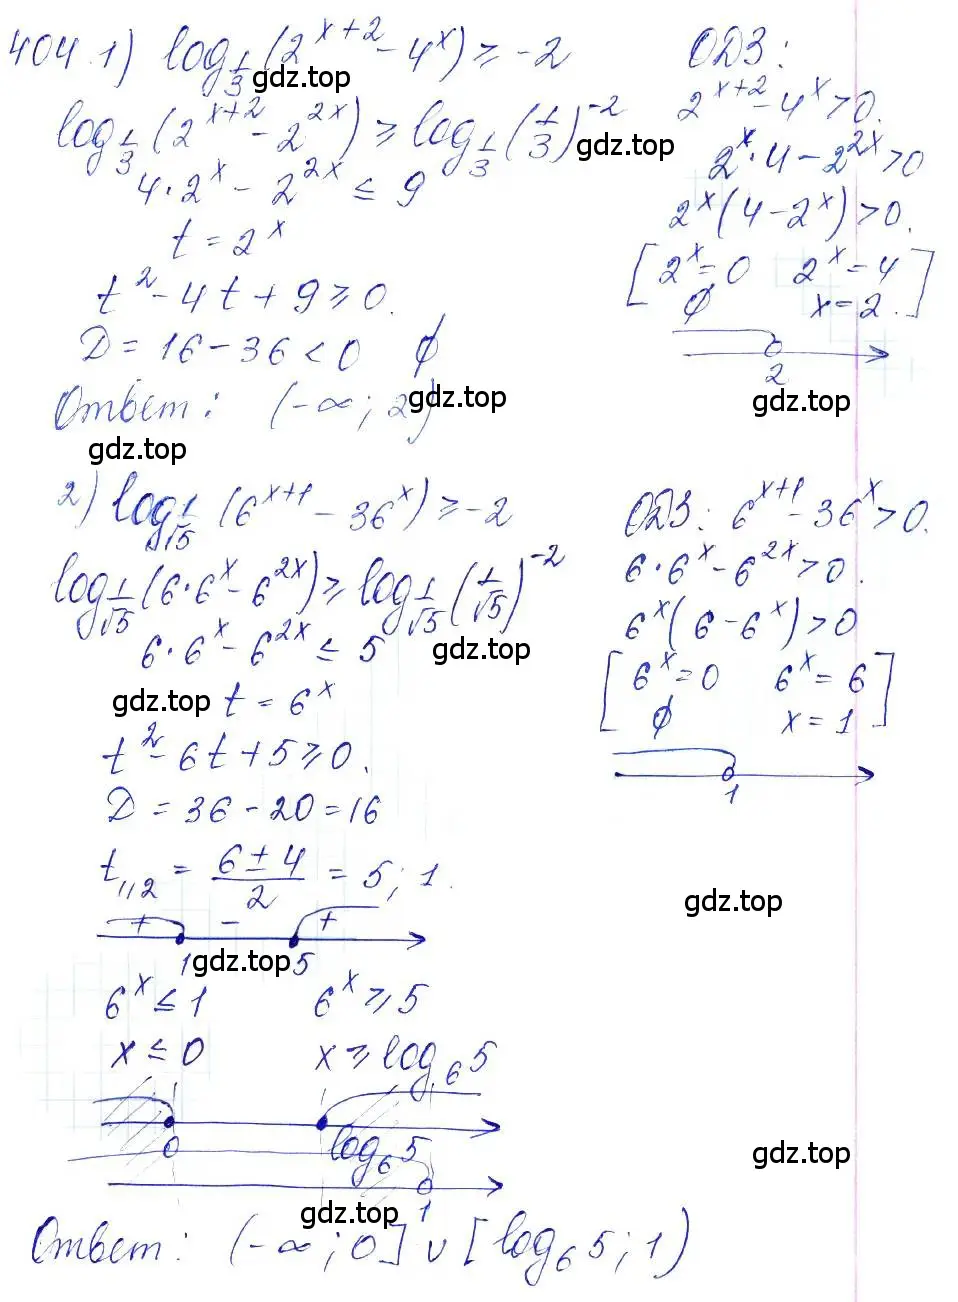 404. 1) log_{1/3} (2^{x+2} - 4^x) ≥ -2
gdz.top
log_{1/3} (2^{x+2} - 2^{2x}) ≥ log_{1/3} (1/3)^{-2}
gdz.top
4·2^x - 2^{2x} ≤ 9
t = 2^x
t^2 - 4t + 9 ≥ 0.
D = 16 - 36 < 0 ∅
Ответ: (-∞; 2)
gdz.top
gdz.top
ОДЗ:
2^{x+2} - 4^x > 0.
2^x·4 - 2^{2x} > 0
2^x(4 - 2^x) > 0.
[ 2^x = 0 2^x = 4 ]
∅ x = 2.
2
gdz.top
2) log_{1/√5} (6^{x+1} - 36^x) ≥ -2
log_{1/√5} (6·6^x - 6^{2x}) ≥ log_{1/√5} (1/√5)^{-2}
6·6^x - 6^{2x} ≤ 5
gdz.top
gdz.top t = 6^x
t^2 - 6t + 5 ≥ 0.
D = 36 - 20 = 16
t_{1,2} = (6 ± 4)/2 = 5; 1.
+ - +
1 gdz.top 5
6^x ≤ 1 6^x ≥ 5
x ≤ 0 x ≥ log_6 5
0 log_6 5
1
gdz.top
Ответ: (-∞; 0] ∪ [log_6 5; 1)
ОДЗ: 6^{x+1} - 36^x > 0.
6·6^x - 6^{2x} > 0.
6^x(6 - 6^x) > 0
[ 6^x = 0 6^x = 6 ]
∅ x = 1
1
gdz.top
gdz.top